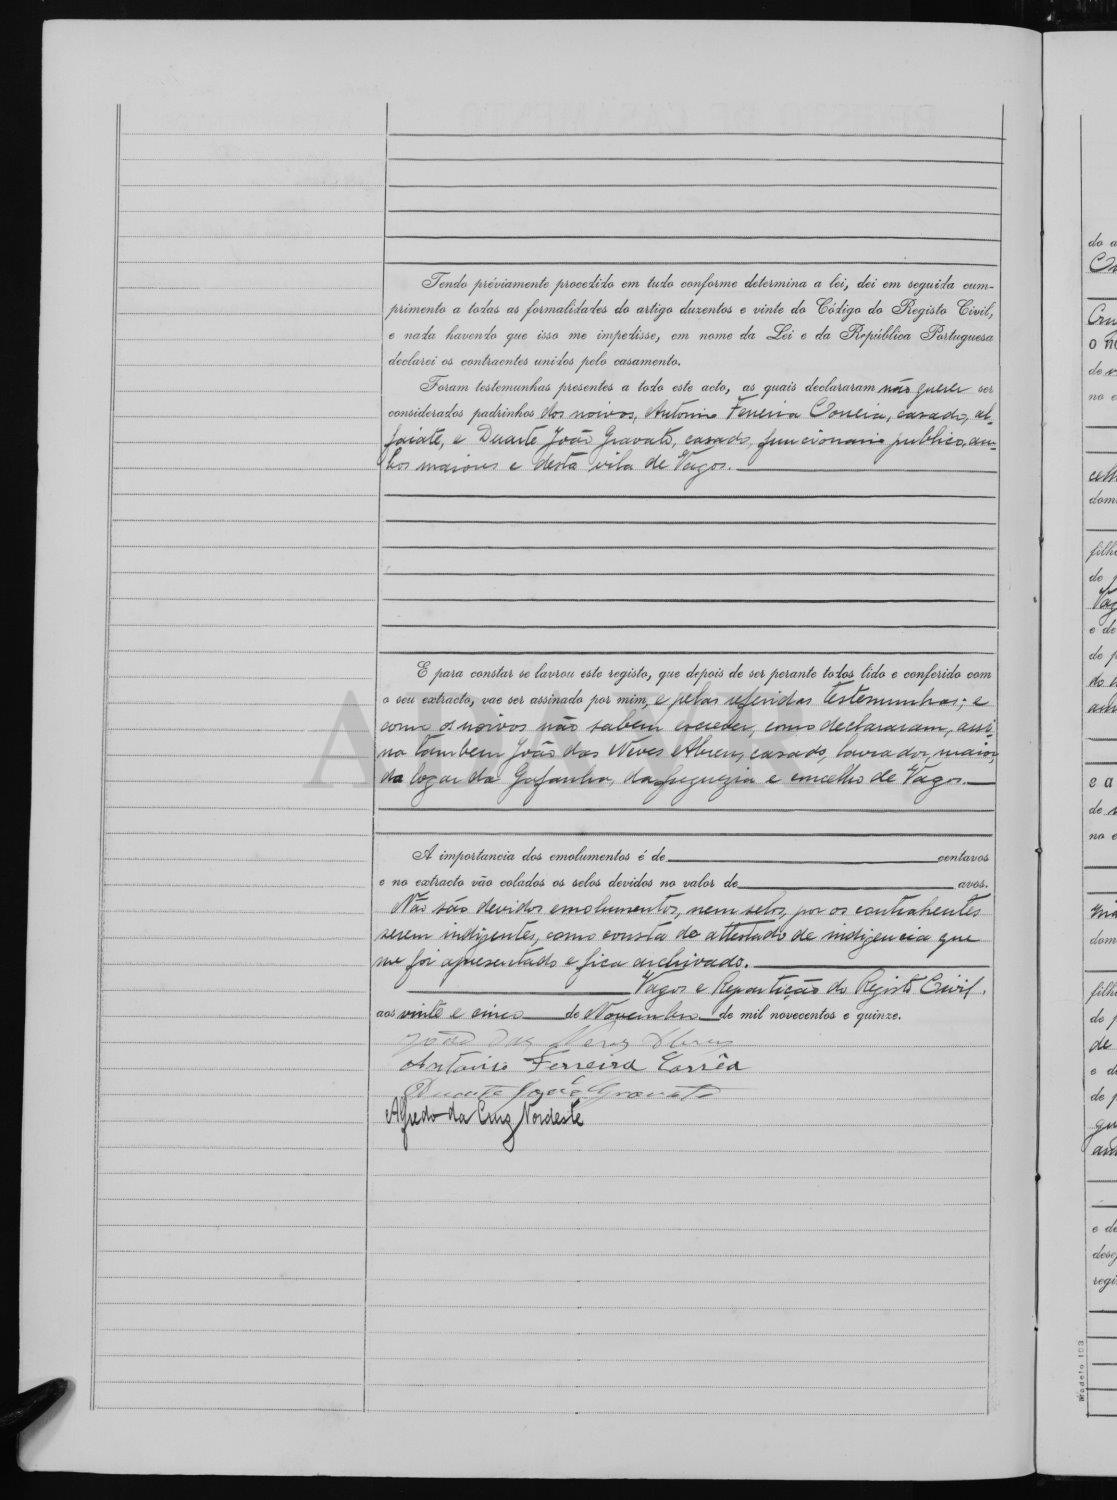 Tendo préviamente procedido em tudo conforme determina a lei, dei em seguida cum-
primento a todas as formalidades do artigo duzentos e vinte do Código do Registo Civil,
e nada havendo que isso me impedisse, em nome da Lei e da República Portuguesa
declarei os contraentes unidos pelo casamento.
Foram testemunhas presentes a todo este acto, as quais declararam não querer ser
considerados padrinhos dos noivos, Antonio Ferreira Correia, casado, al-
faiate, e Duarte João Gravato, casado, funcionario publico, am-
bos maiores e desta vila de Vagos.
E para constar se lavrou este registo, que depois de ser perante todos lido e conferido com
o seu extracto, vae ser assinado por mim, e pelas referidas testemunhas; e
como os noivos não sabem escrever, como declararam, assi-
na tambem João das Neves Abreu, casado, lavrador, maior,
do logar da Gafanha, da freguezia e concelho de Vagos.
A importancia dos emolumentos é de centavos
e no extracto vão colados os selos devidos no valor de avos.
Não são devidos emolumentos, nem selos, por os contrahentes
serem indigentes, como consta do attestado de indigencia que
me foi apresentado e fica archivado.
Vagos e Repartição do Registo Civil,
aos vinte e cinco de Novembro de mil novecentos e quinze.
João das Neves Abreu
Antonio Ferreira Corrêa
Duarte João Gravato
Alfredo da Cruz Nordeste
do a
filho
Vag
e de
e a
no e
filh
de
e de
desg
regi
Modelo 103